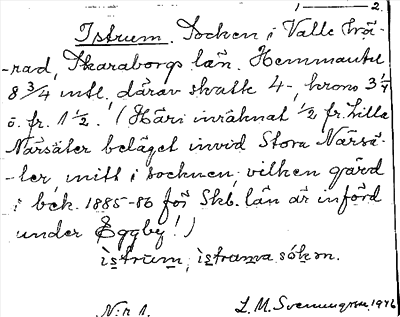 1 — 2.
Istrum. Socken i Valle hä-
-rad, Skaraborgs län. Hemmantal
8 3/4 mtl, därav skatte 4-, krono 3 1/4
o. fr. 1 1/2. (Häri inräknat 1/2 fr. Lilla
Närsäter beläget invid Stora Närsä-
-ter mitt i socknen, vilken gård
i bék. 1885-86 för Skb. län är införd
under Eggby!)
istrum, istrama sókon.
N:r 1. L. M. Svenungsson, 1946